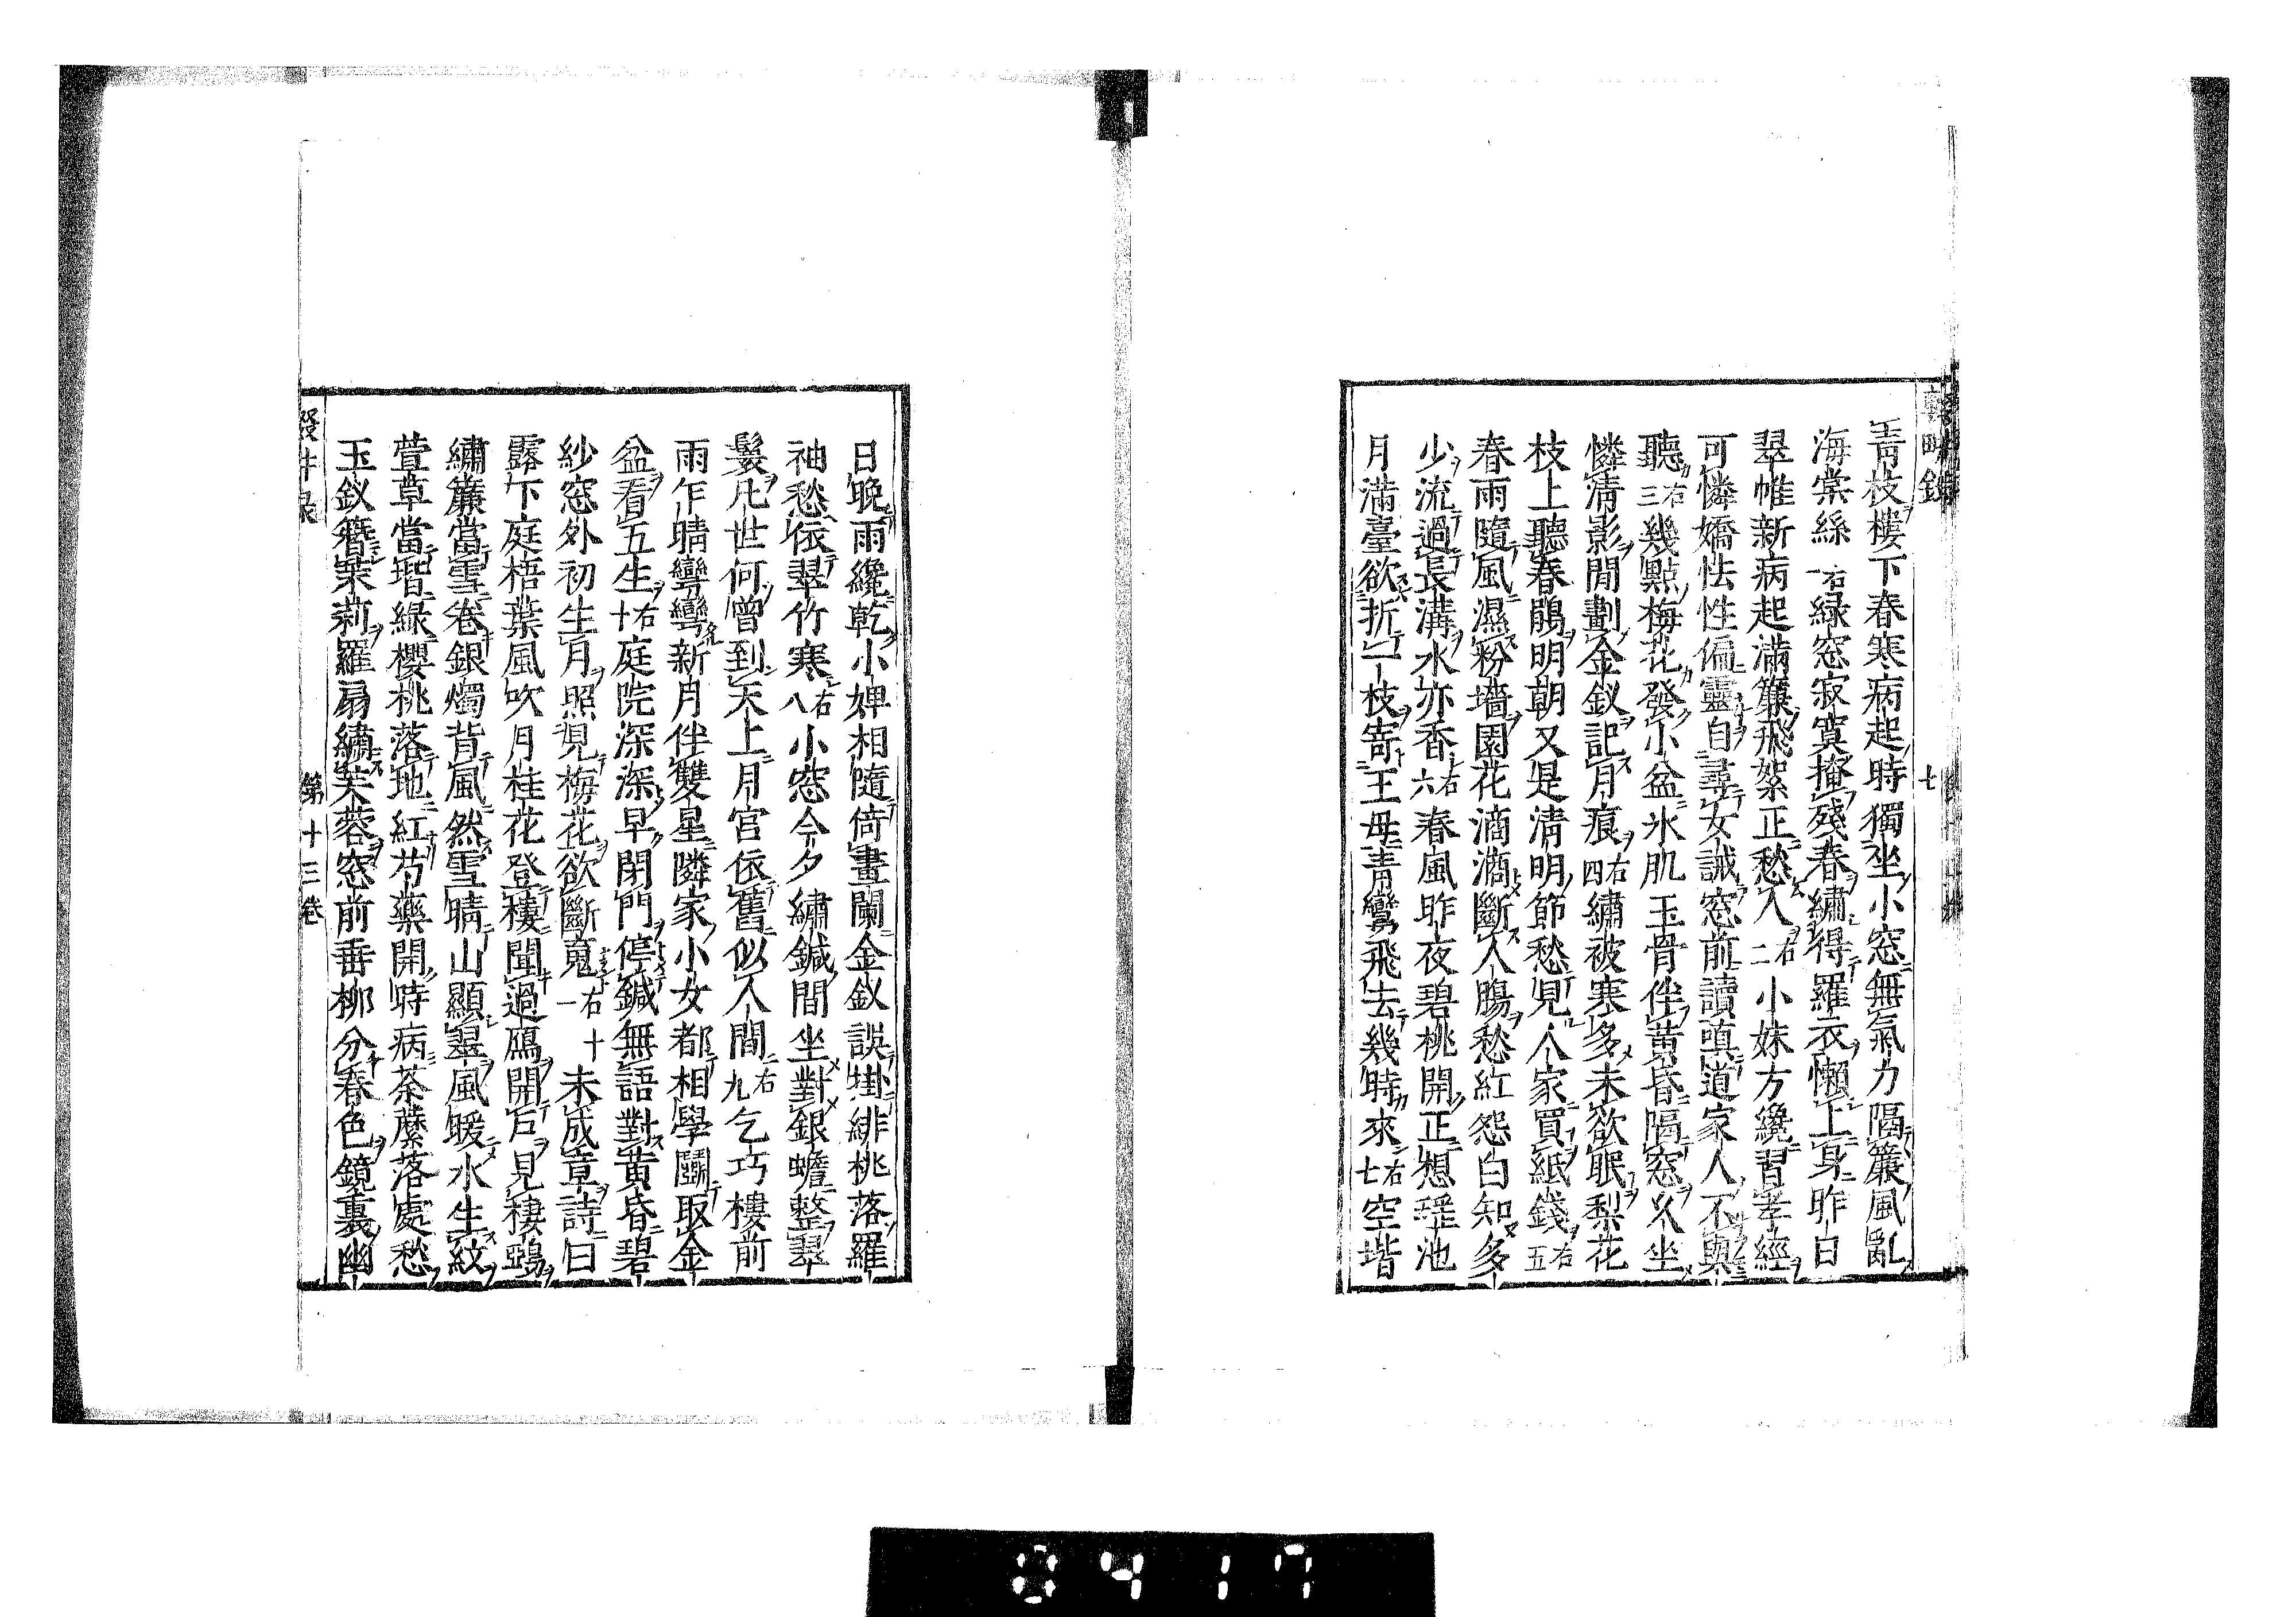 青枝樓下春寒病起時獨坐小窓無氣力隔簾風亂
海棠絲 右一 緑窓寂寞掩殘春繡得羅衣懶上身昨日
翠帷新病起滿簾飛絮正愁人 右二 小妹方纔習孝經
可憐嬌怯性偏靈自尋女誡窓前讀嗔道家人不與
聽 右三 幾點梅花發小盆氷肌玉骨伴黄昏隔窓久坐
憐清影閒劃金釵記月痕 右四 繡被寒多未欲眠梨花
枝上聽春鵑明朝又是清明節愁見人家買紙錢 右五
春雨隨風濕粉墻園花滴滴斷人腸愁紅怨白知多
少流過長溝水亦香 右六 春風昨夜碧桃開正想瑶池
月滿臺欲折一枝寄王母青鸞飛去幾時來 右七 空堦
七
日晚雨纔乾小婢相隨倚畫闌金釵誤掛緋桃落羅
袖愁依翠竹寒 右八 小窓今夕繡鍼間坐對銀蟾整翠
鬟凡世何曾到天上月宮依舊似人間 右九 乞巧樓前
雨乍晴彎彎新月伴雙星隣家小女都相學鬭取金
盆看五生 右十 庭院深深早閉門停鍼無語對黄昏碧
紗窓外初生月照見梅花欲斷䰟 右十一 未成章詩曰
露下庭梧葉風吹月桂花登樓聞過鴈開戸見棲鵶
繡簾當雪卷銀燭背風然雪晴山顯翠風暖水生紋
萱草當堦緑櫻桃落地紅芍藥開時病荼蘼落處愁
玉釵簪茉莉羅扇繡芙蓉窓前垂柳分春色鏡裏幽
第十三卷